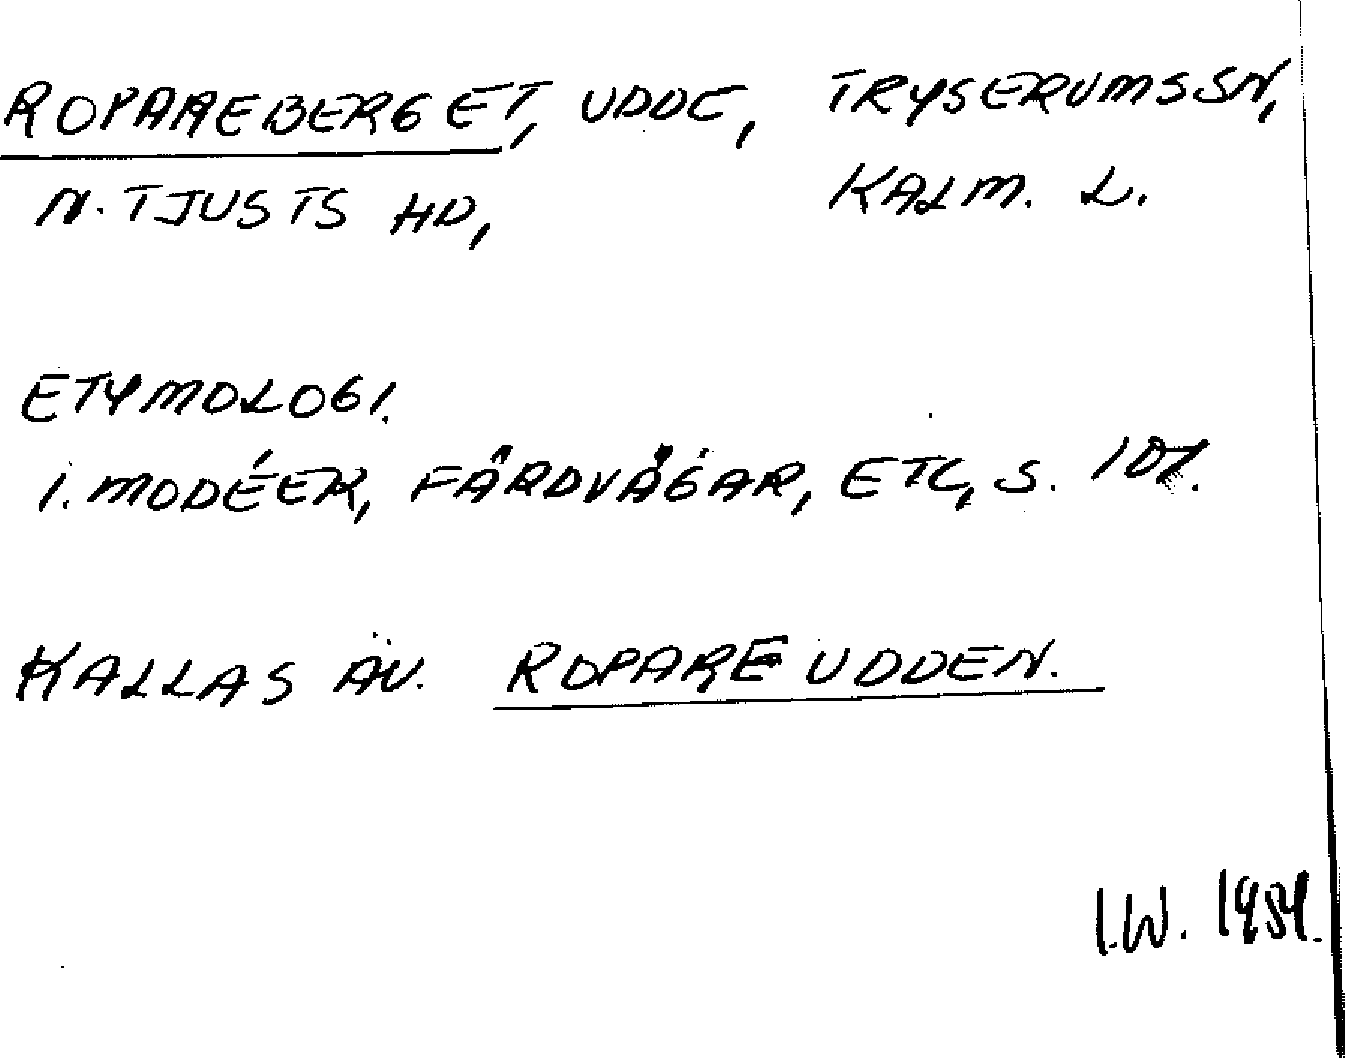 ROPAREBERGET, UDDE, TRYSERUMS SN,
N. TJUSTS HD, KALM. L.
ETYMOLOGI.
I. MODÉER, FÄRDVÄGAR, ETC, S. 107.
KALLAS ÄV. ROPAREUDDEN.
I.W. 1959.